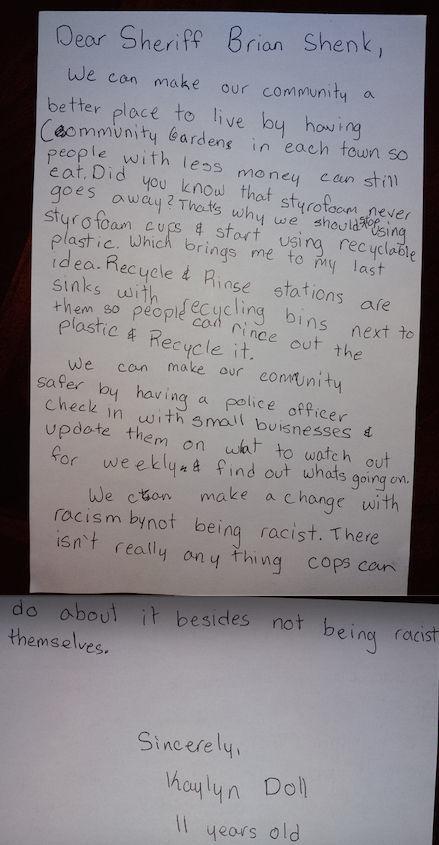 Dear Sheriff Brian Shenk,
We can make our community a
better place to live by having
Community Gardens in each town so
people with less money can still
eat. Did you know that styrofoam never
goes away? That's why we should stop using
styrofoam cups & start using recyclable
plastic. Which brings me to my last
idea. Recycle & Rinse stations are
sinks with recycling bins next to
them so people can rince out the
plastic & Recycle it.
We can make our community
safer by having a police officer
check in with small buisnesses &
update them on what to watch out
for weekly & find out whats going on.
We can make a change with
racism by not being racist. There
isn't really any thing cops can
do about it besides not being racist
themselves.
Sincerely,
Kaylyn Doll
11 years old